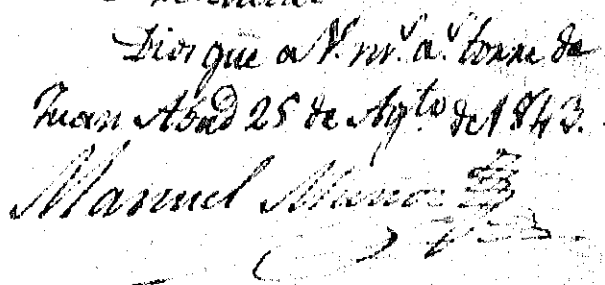 Dios gue a V. ms. as. torre de
Juan Abad 25 de Agto. de 1843.
Manuel Munoz